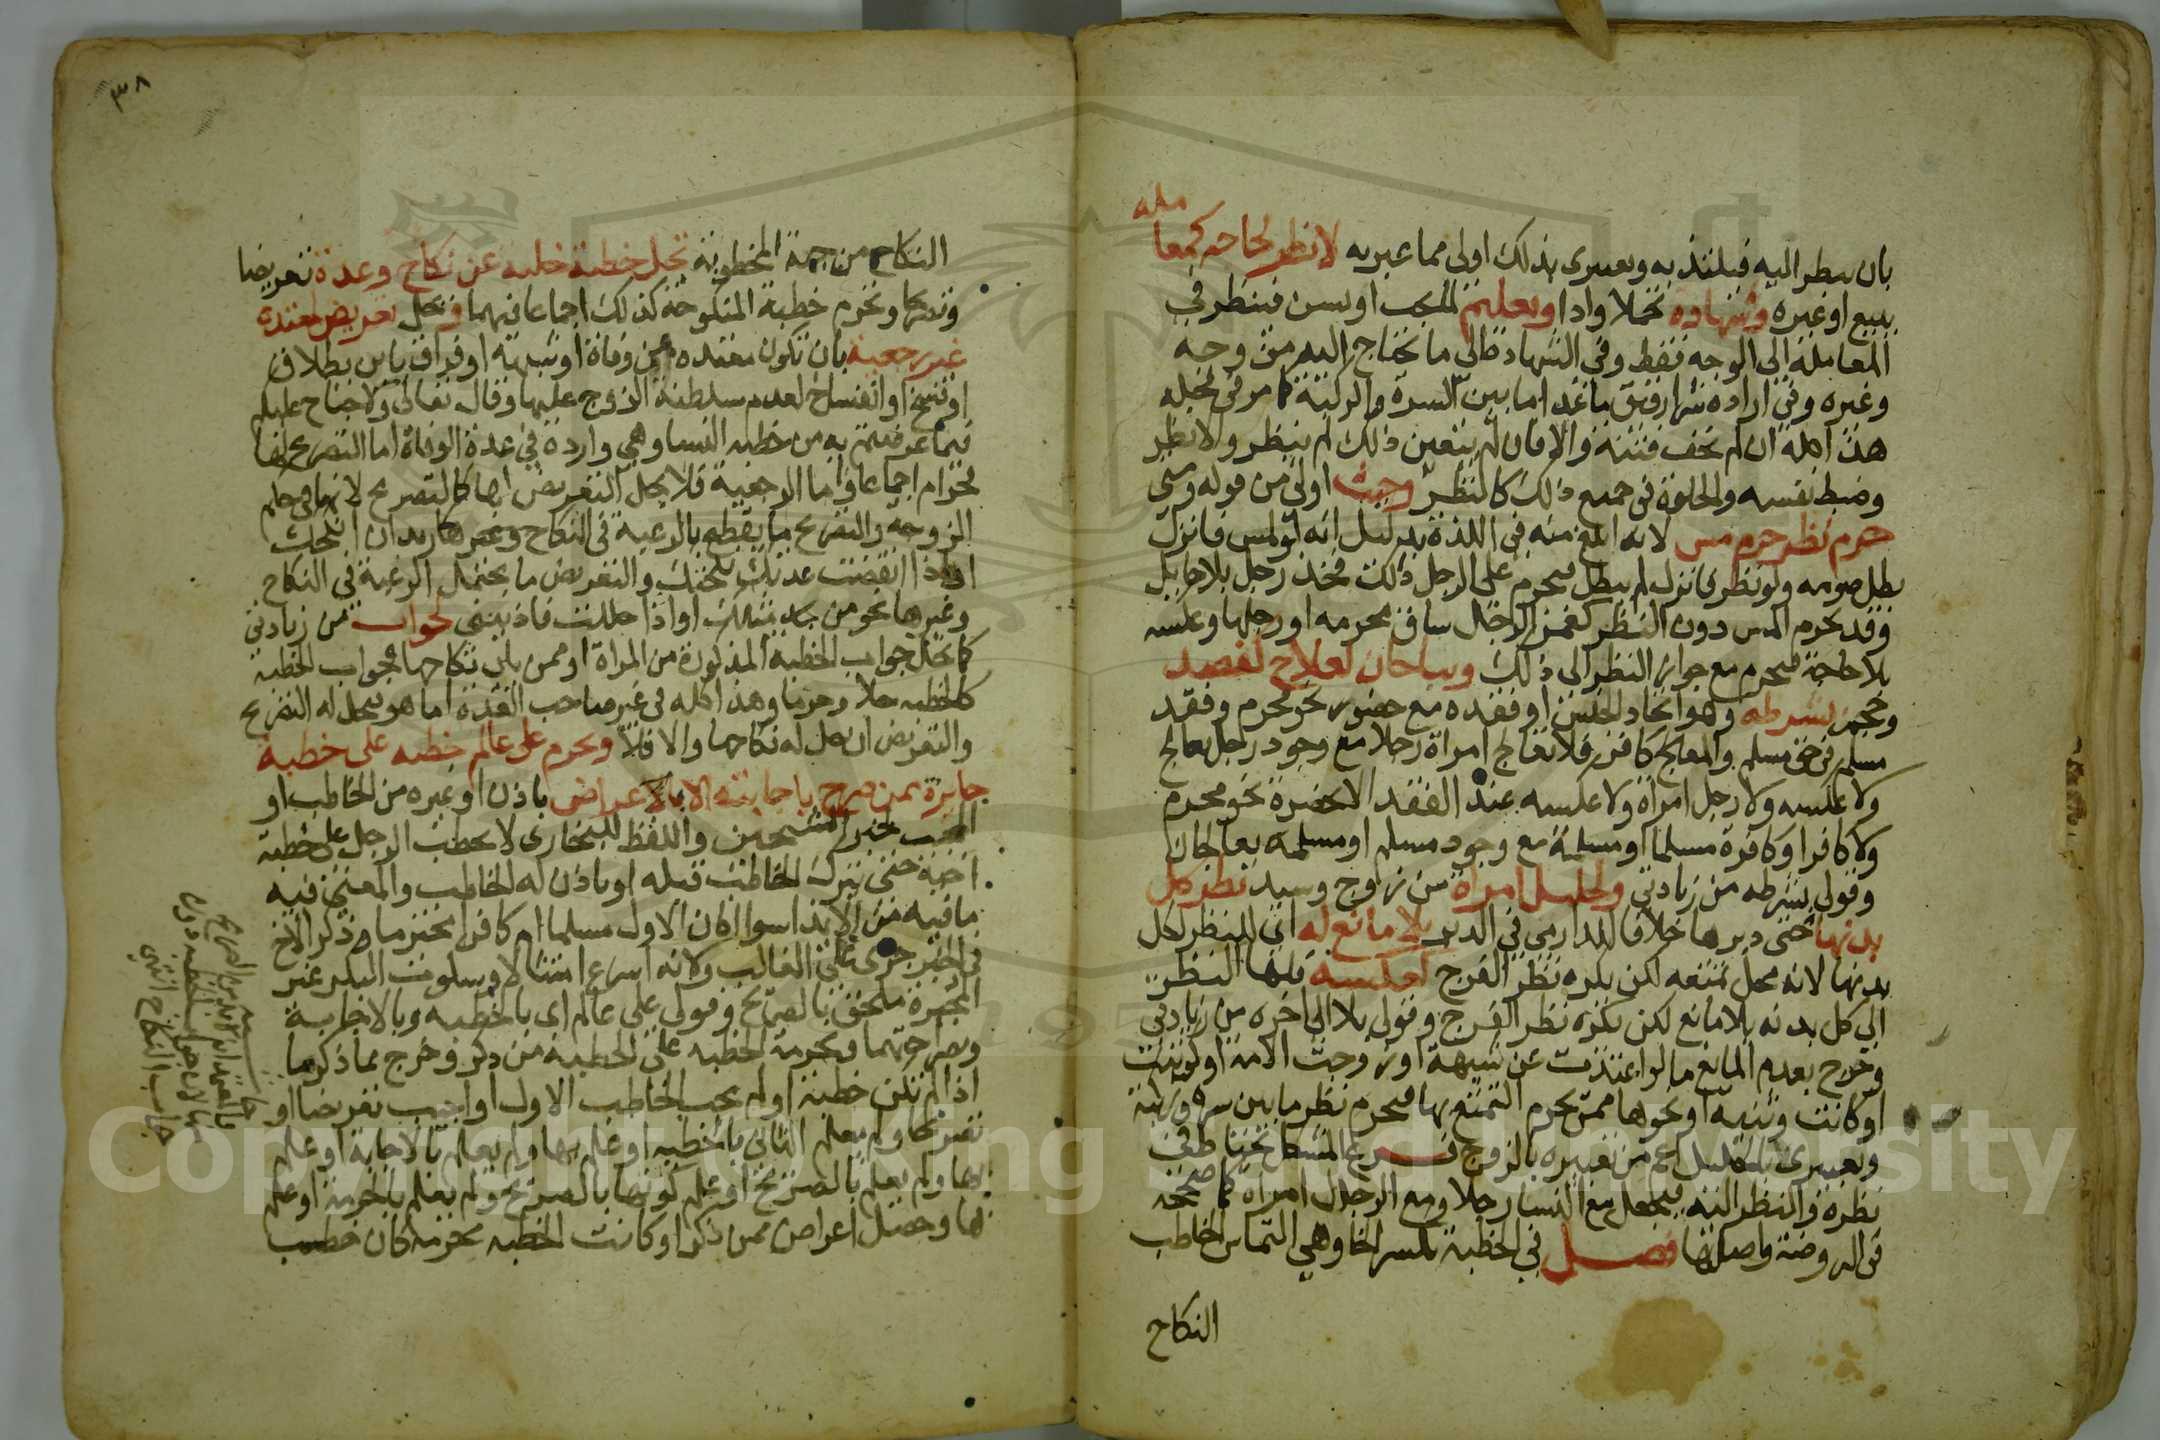 بان ينظر اليه فيلتذ به وتعبيرى بذلك اولى مما عبر به لا نظر لحاجه كمعا
مله
ببيع او غيره وشهاده تحملا وادا وتعليم لما يجب او يسن فينظر في
المعاملة الى الوجه فقط وفي الشهادة الى ما يحتاج اليه من وجه
وغيره وفي ارادة شرا رقيق ما عدا ما بين السرة والركبة كما مر في محله
هذا كله ان لم يخف فتنة والا فان لم يتعين ذلك لم ينظر والا نظر
وضبط نفسه والخلوة في جميع ذلك كالنظر وحيث اولى من قوله ومتى
حرم نظر حرم مس لانه ابلغ منه في اللذة بدليل انه لو لمس فانزل
بطل صومه ولو نظر فانزل لم يبطل فيحرم على الرجل دلك فخذ رجل بلا حايل
وقد يحرم المس دون النظر كغمز الرجال ساق محرمه او رجلها وعكسه
بلا حاجة فيحرم مع جواز النظر الى ذلك ويباحان لعلاج كفصد
وحجم بشرطه وهو اتحاد الجنس او فقده مع حضور نحو محرم وفقد
مسلم في حق مسلم والمعالج كافر فلا تعالج امراة رجلا مع وجود رجل يعالج
ولا عكسه ولا رجل امراة ولا عكسه عند الفقد الا بحضرة نحو محرم
ولا كافر او كافرة مسلما او مسلمة مع وجود مسلم او مسلمة يعالجان
وقولى بشرطه من زيادتي ولحليل امراة من زوج وسيد نظر كل
بدنها حتى دبرها خلافا للدارمي في الدبر بلا مانع له اى للنظر لكل
بدنها لانه محل تمتعه لكن يكره نظر الفرج كعكسه فلها النظر
الى كل بدنه بلا مانع لكن يكره نظر الفرج وقولى بلا الى اخره من زيادتي
وخرج بعدم المانع ما لو اعتدت عن شبهة او زوجت الامة او كوتبت
او كانت وثنية او نحوها ممن يحرم التمتع بها فيحرم نظر ما بين سرة وركبة
وتعبيرى بالحليل اعم من تعبيره بالزوج فرع المشكل يحتاط في
نظره والنظر اليه فيجعل مع النسا رجلا ومع الرجال امراة كما صححه
في الروضة واصلها فصل في الخطبة بكسر الخا وهي التماس الخاطب
النكاح
٣٨
النكاح من جهة المخطوبة تحل خطبة خلية عن نكاح وعدة تعريضا
وتصريحا وتحرم خطبة المنكوحة كذلك اجماعا فيهما وتحل تعريض لمعتدة
غير رجعية بان تكون معتده عن وفاة او شبهة او فراق باين بطلاق
او فسخ او انفساخ لعدم سلطنة الزوج عليها وقال تعالى ولا جناح عليكم
فيما عرضتم به من خطبة النسا وهي واردة في عدة الوفاة اما التصريح لها
فحرام اجماعا واما الرجعية فلا يحل التعريض لها كالتصريح لانها في حكم
الزوجة والتصريح ما يقطع بالرغبة في النكاح وغيرها كاريد ان انكحك
او اذا انقضت عدتك نكحتك والتعريض ما يحتمل الرغبة في النكاح
وغيرها نحو من يجد مثلك او اذا حللت فاذنيني كجواب من زيادتي
كما تحل جواب الخطبة المذكورة من المراة او ممن يلي نكاحها فجواب الخطبة
كالخطبة حلا وحرمة وهذا كله في غير صاحب العدة اما هو فيحل له التصريح
والتعريض ان حل له نكاحها والا فلا وتحرم على عالم خطبة على خطبة
جايزة ممن صرح باجابته الا باعراض باذن او غيره من الخاطب او
المجيب لخبر الشيخين واللفظ للبخارى لا يخطب الرجل على خطبة
اخيه حتى يترك الخاطب قبله او ياذن له الخاطب والمعنى فيه
ما فيه من الايذا سوا اكان الاول مسلما ام كافرا محترما وذكر الاخ
في الخبر جرى على الغالب ولانه اسرع امتثالا وسكوت البكر غير
المجبرة ملحق بالصريح وقولى على عالم اى بالخطبة وبالاجابة
وبصراحتهما وبحرمة الخطبة على الخطبة من ذكر وخرج بما ذكر ما
اذا لم تكن خطبة او لم يجب الخاطب الاول او اجيب تعريضا او
تصريحا ولم يعلم الثاني بالخطبة او علم بها ولم يعلم بالاجابة او علم
بها ولم يعلم بالصريح او علم كونها بالصريح ولم يعلم بالحرمة او علم
بها وحصل اعراض ممن ذكر او كانت الخطبة محرمة كان خطب
Copyright © King Saud University